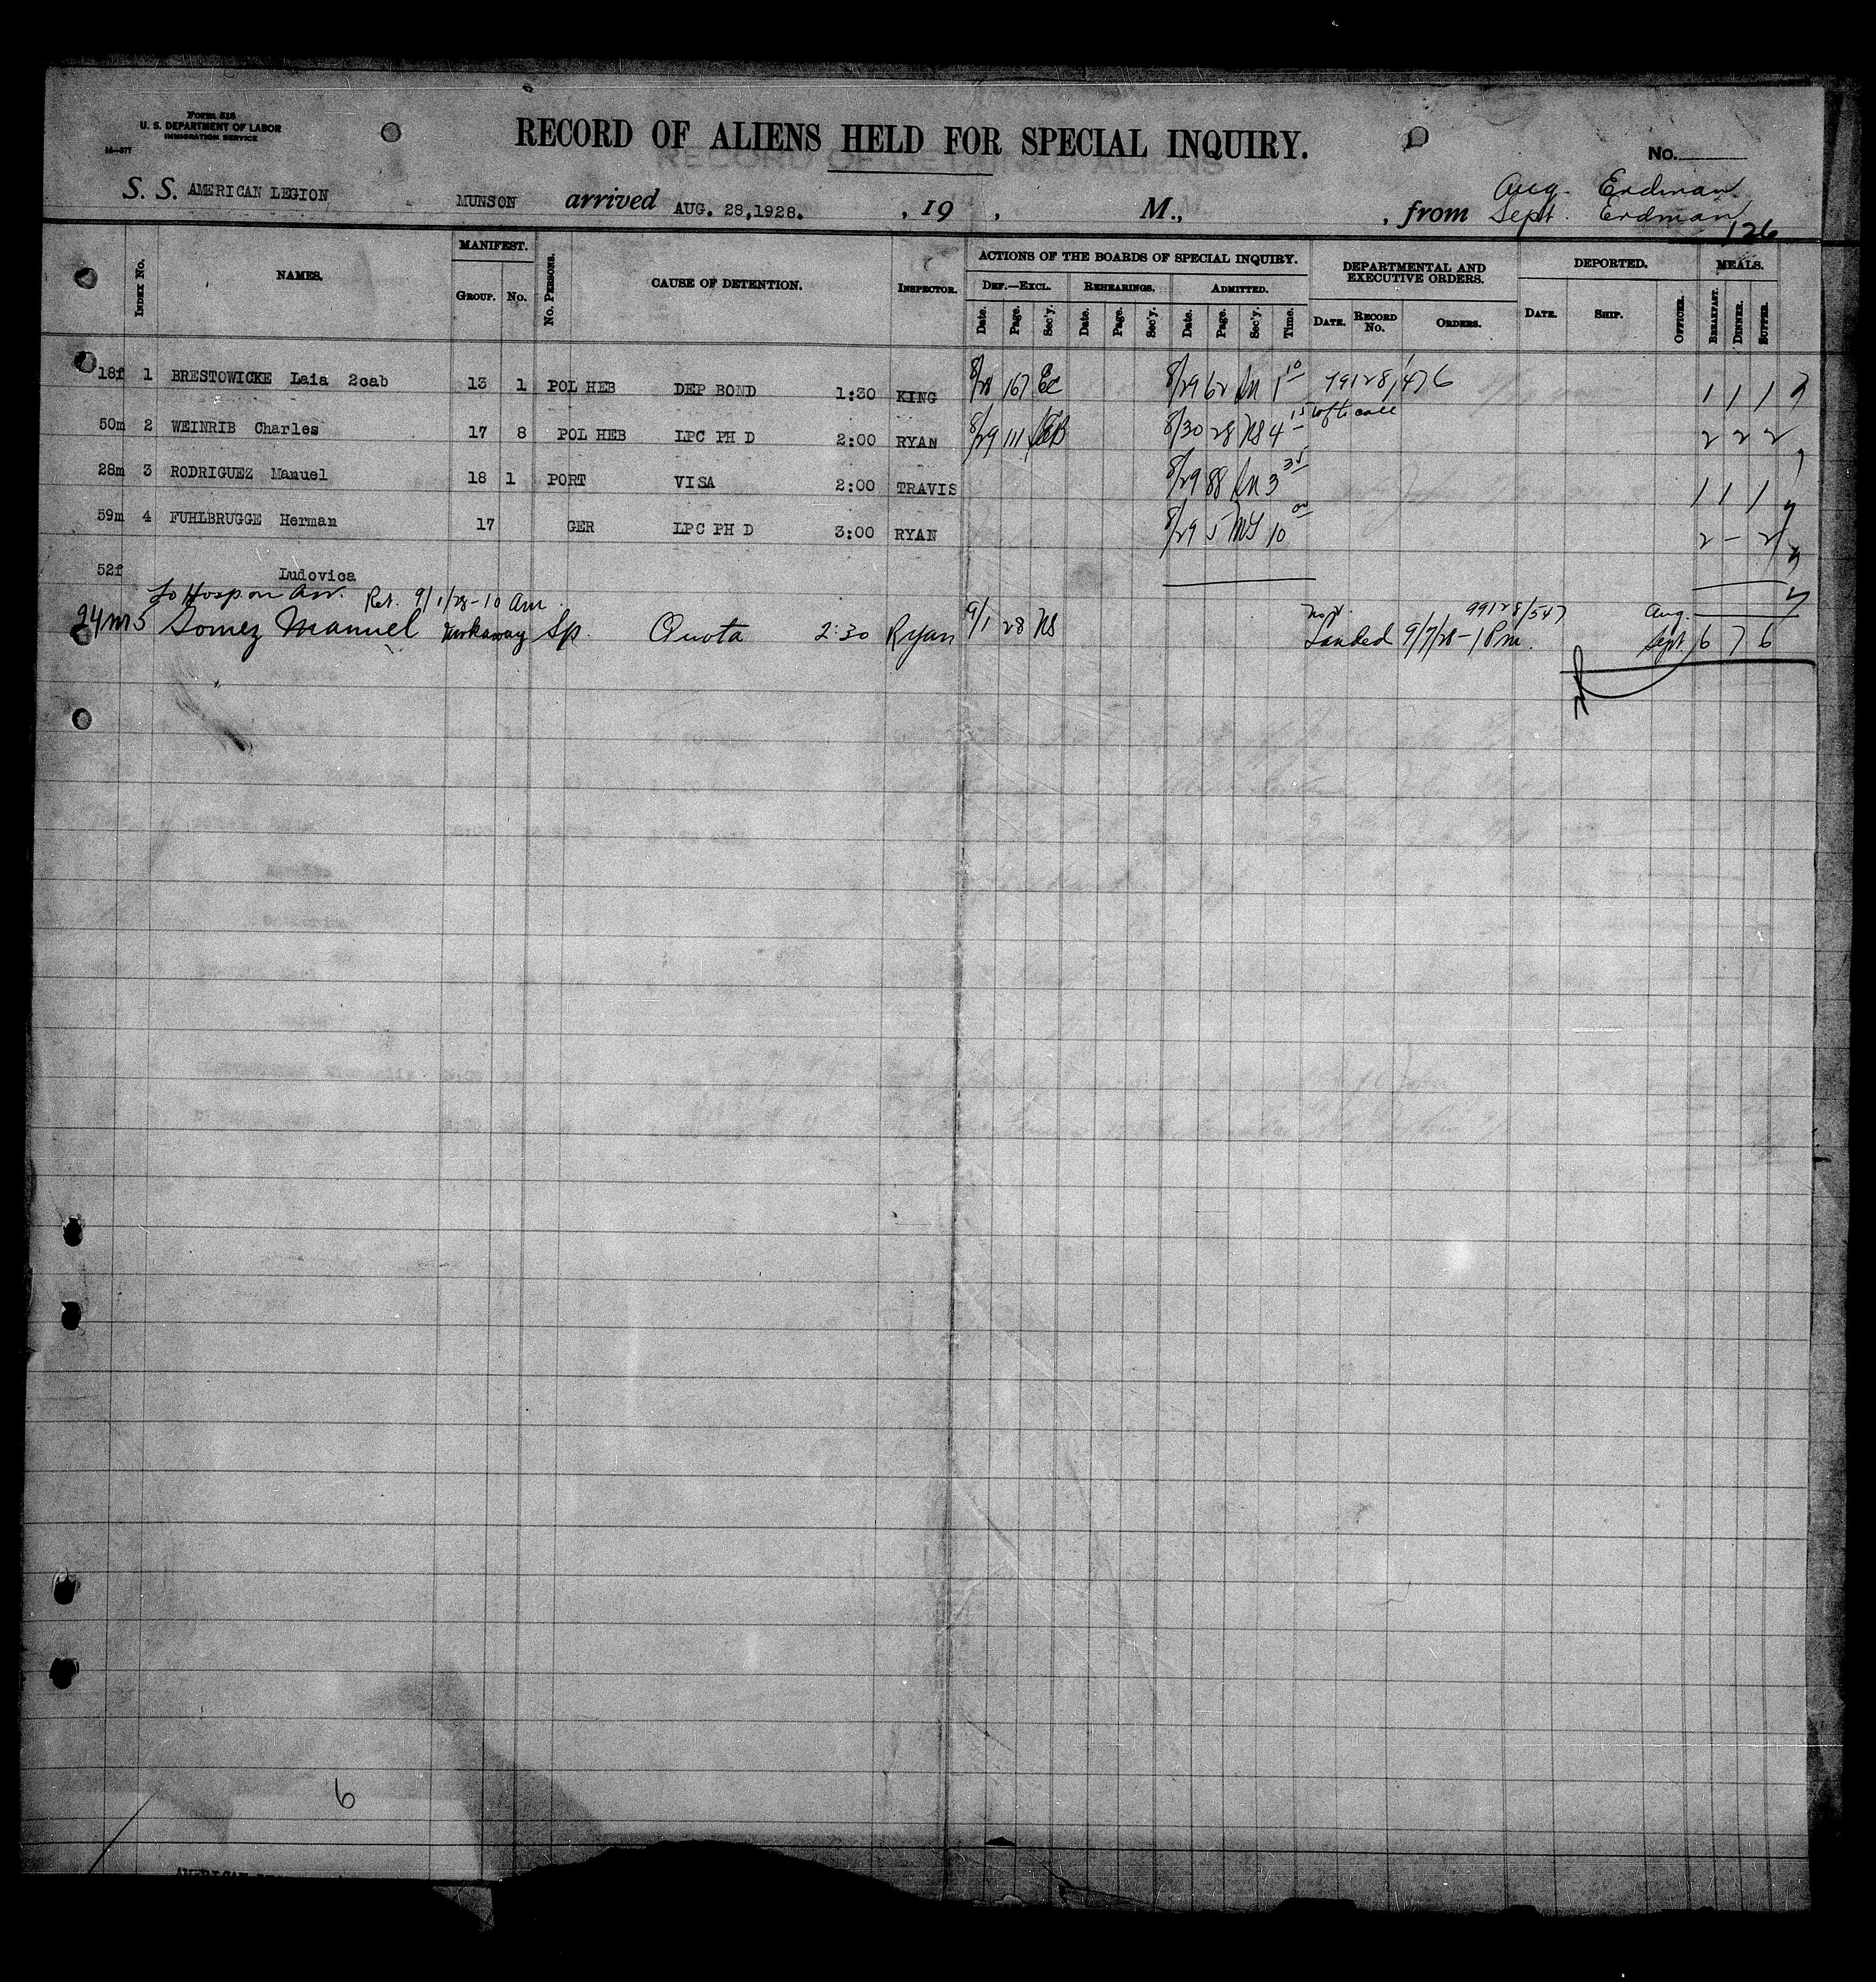 Form 518
U. S. DEPARTMENT OF LABOR
IMMIGRATION SERVICE
RECORD OF ALIENS HELD FOR SPECIAL INQUIRY.
No.
S. S. AMERICAN LEGION MUNSON arrived AUG. 28,1928. , 19 , M., , from Aug. Erdman
Sept. Erdman
126
INDEX No. NAMES. MANIFEST. GROUP. No. No. PERSONS. CAUSE OF DETENTION. INSPECTOR. ACTIONS OF THE BOARDS OF SPECIAL INQUIRY. DEPARTMENTAL AND EXECUTIVE ORDERS. DEPORTED. MEALS.
DEF.—EXCL. REHEARINGS. ADMITTED.
Date. Page. Sec'y. Date. Page. Sec'y. Date. Page. Sec'y. Time. DATE. RECORD No. ORDERS. DATE. SHIP. OFFICER. BREAKFAST. DINNER. SUPPER.
18f 1 BRESTOWICKE Laia 2cab 13 1 POL HEB DEP BOND 1:30 KING 8/28 167 EC 8/29 62 1 10 99128/476 1 1 1
50m 2 WEINRIB Charles 17 8 POL HEB LPC PH D 2:00 RYAN 8/29 111 8/30 28 NS 4 15 2 2 2
28m 3 RODRIGUEZ Manuel 18 1 PORT VISA 2:00 TRAVIS 8/29 88 3 35 1 1 1
59m 4 FUHLBRUGGE Herman 17 GER LPC PH D 3:00 RYAN 8/29 5 10 00 2 - 2
52f Ludovica
To Hosp on Arr. Ret. 9/1/28-10 Am.
24m 5 Gomez Manuel Workaway Sp. Quota 2:30 Ryan 9/1 28 NS 99128/547 Aug.
Landed 9/7/28-1 Pm. Sept. 6 7 6
6